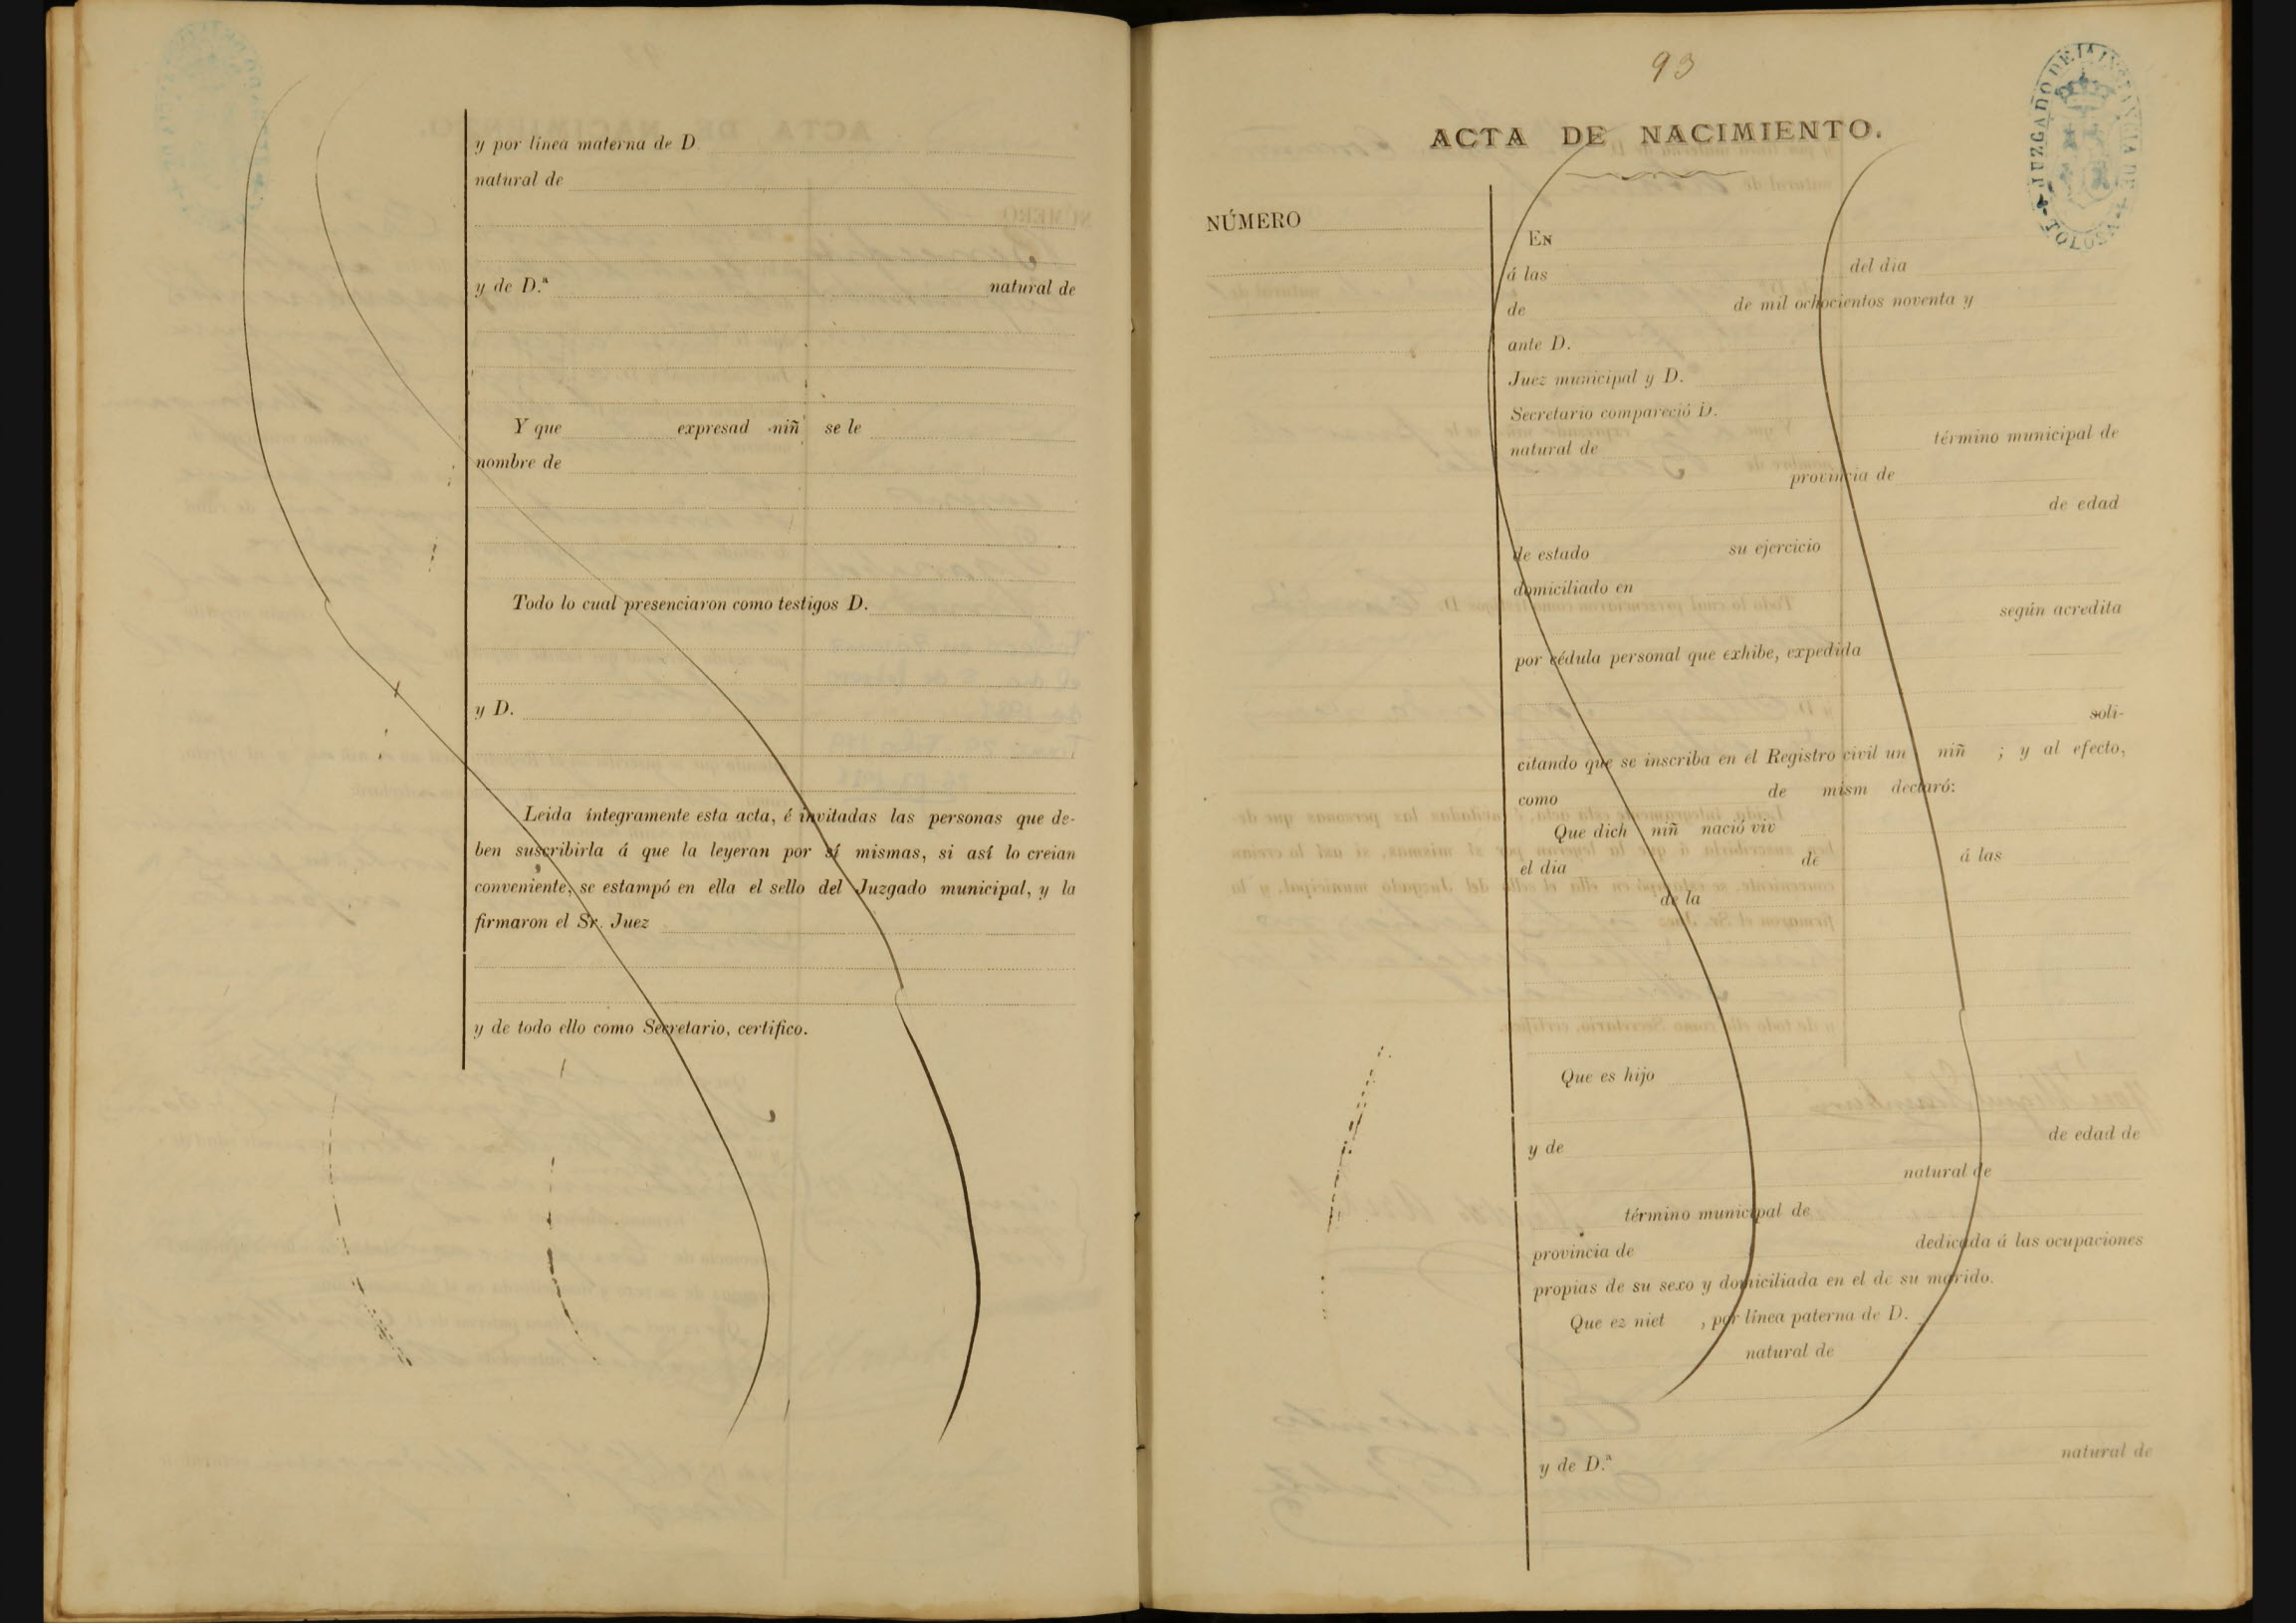 y por línea materna de D.
natural de
y de D.ª natural de
Y que expresad niñ se le
nombre de
Todo lo cual presenciaron como testigos D.
y D.
Leida íntegramente esta acta, é invitadas las personas que de-
ben suscribirla á que la leyeran por sí mismas, si así lo creian
conveniente, se estampó en ella el sello del Juzgado municipal, y la
firmaron el Sr. Juez
y de todo ello como Secretario, certifico.
93
ACTA DE NACIMIENTO.
JUZGADO DE 1ª INSTANCIA DE TOLOSA
NÚMERO
En
á las del dia
de de mil ochocientos noventa y
ante D.
Juez municipal y D.
Secretario compareció D.
natural de término municipal de
provincia de
de edad
de estado su ejercicio
domiciliado en
según acredita
por cédula personal que exhibe, expedida
soli-
citando que se inscriba en el Registro civil un niñ ; y al efecto,
como de mism declaró:
Que dich niñ nació viv
el dia de á las
de la
Que es hijo
y de de edad de
natural de
término municipal de
provincia de dedicada á las ocupaciones
propias de su sexo y domiciliada en el de su marido.
Que ez niet , por línea paterna de D.
natural de
y de D.ª natural de